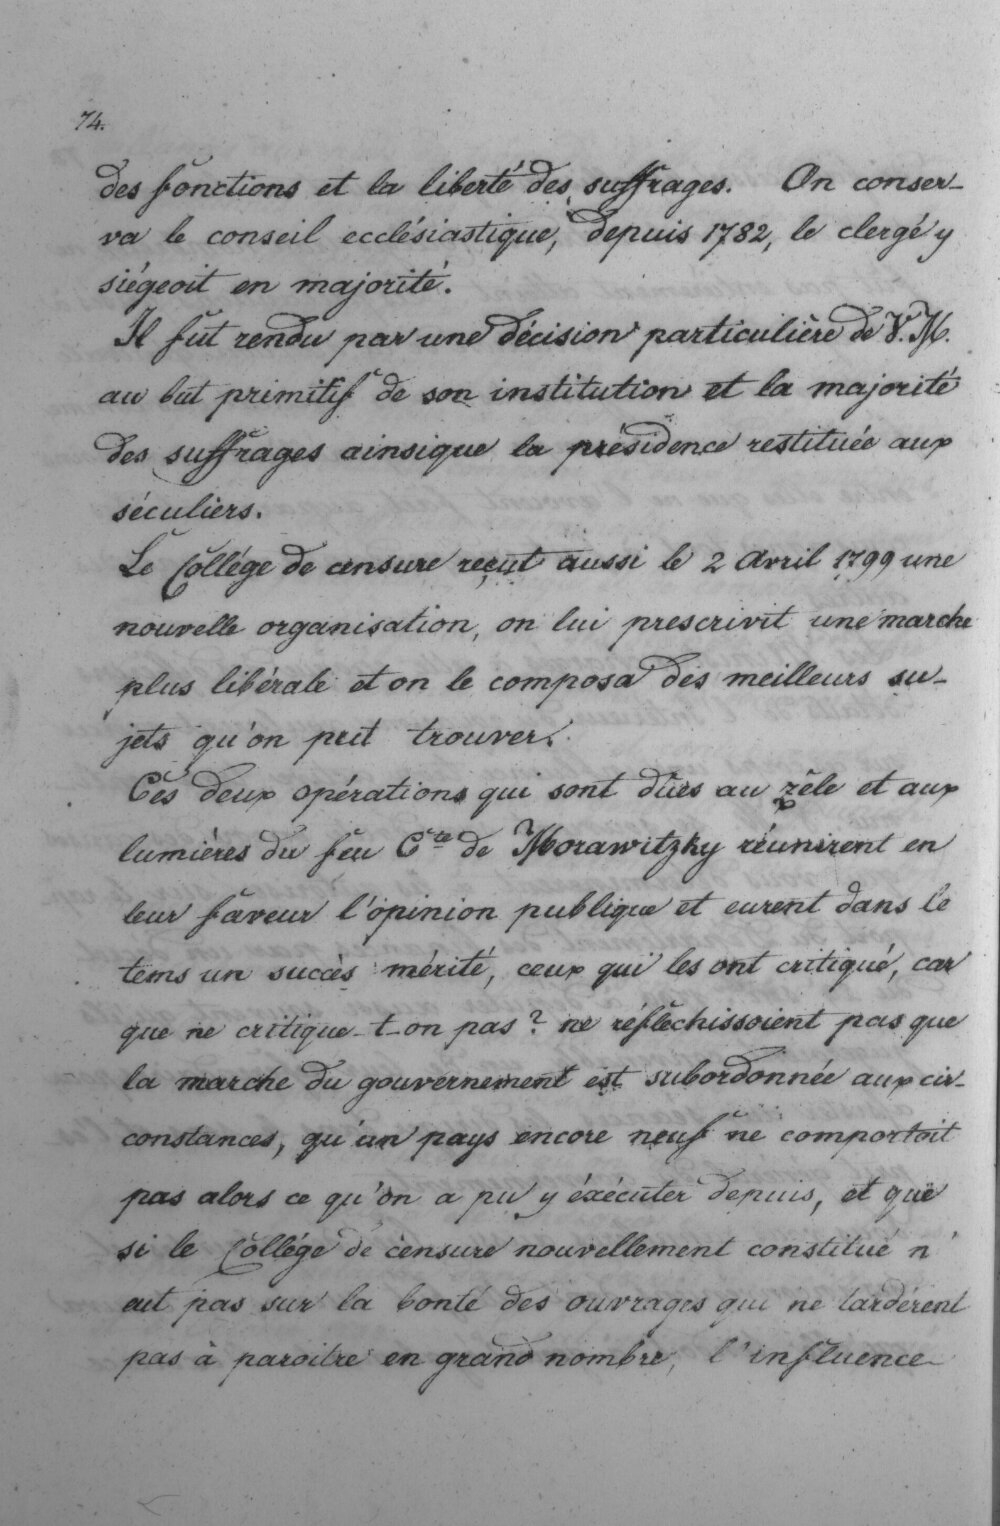 74.
des fonctions et la liberté des suffrages. On conser-
va le conseil ecclésiastique, depuis 1782, le clergé y
siégeoit en majorité.
Il fut rendu par une décision particulière de V. M.
au but primitif de son institution et la majorité
des suffrages ainsique la présidence restituée aux
séculiers.
Le Collége de censure reçut aussi le 2 Avril 1799 une
nouvelle organisation, on lui prescrivit une marche
plus libérale et on le composa des meilleurs su-
jets qu'on put trouver.
Ces deux opérations qui sont dûes au zèle et aux
lumières du feu Cte de Morawitzky réunirent en
leur faveur l'opinion publique et eurent dans le
tems un succès mérité, ceux qui les ont critiqué, car
que ne critique-t-on pas? ne réflechissoient pas que
la marche du gouvernement est subordonnée aux cir-
constances, qu'un pays encore neuf ne comportoit
pas alors ce qu'on a pu y éxécuter depuis, et que
si le Collége de censure nouvellement constitué n'
eut pas sur la bonté des ouvrages qui ne tardérent
pas à paroitre en grand nombre, l'influence